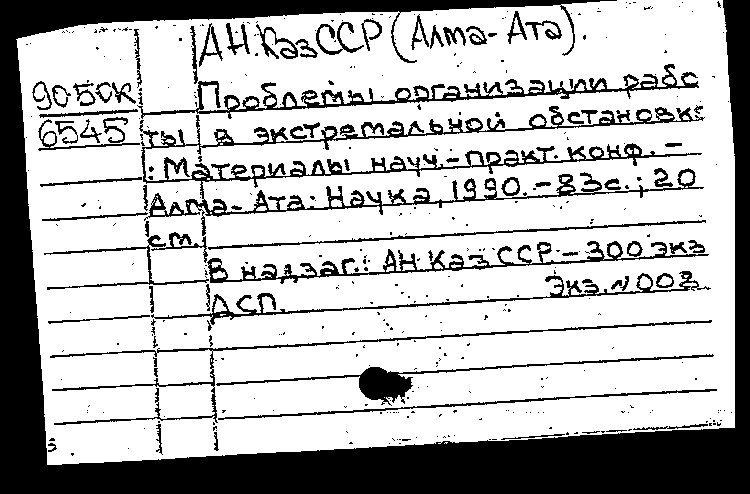 АН.КазССР (Алма-Ата).
905СК Проблемы организации рабо
6545 ты в экстремальной обстановке
: Материалы науч.-практ. конф. -
Алма-Ата: Наука, 1990. - 83с.; 20
см.
В надзаг.: АН КазССР. - 300 экз
ДСП. Экз. N 003